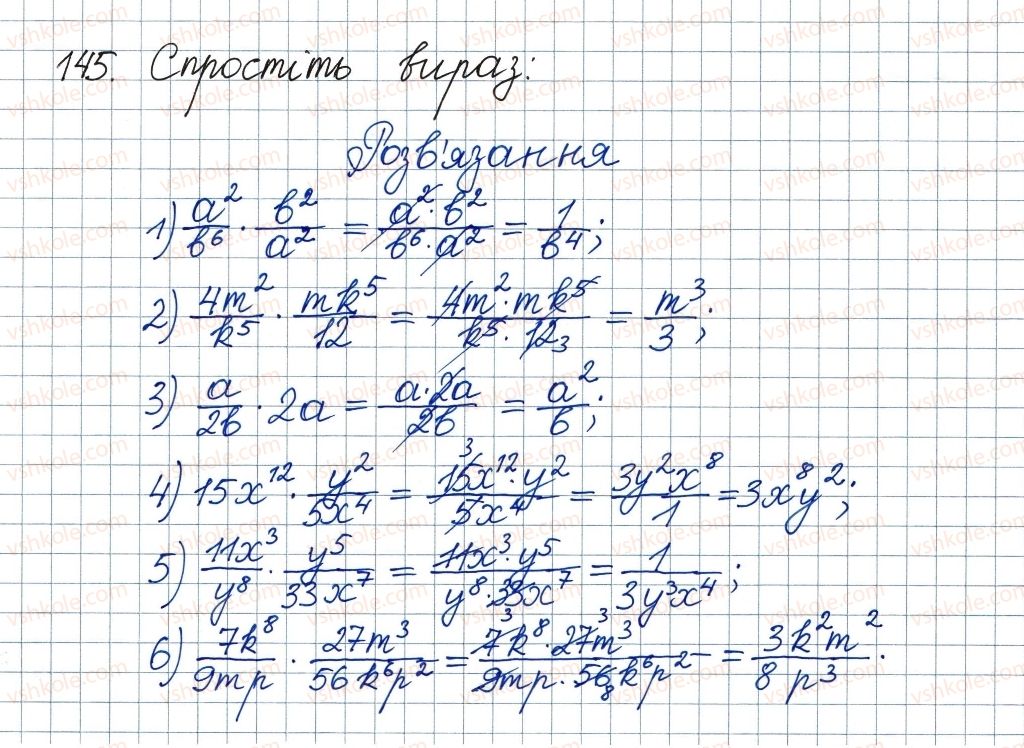 145. Спростіть вираз:
Розв'язання
1) a²/b⁶ · b²/a² = a²·b²/b⁶·a² = 1/b⁴;
2) 4m²/k⁵ · mk⁵/12 = 4m²·mk⁵/k⁵·12 3 = m³/3;
3) a/2b · 2a = a·2a/2b = a²/b;
4) 15x¹² · y²/5x⁴ = 3 15x¹²·y²/5x⁴ = 3y²x⁸/1 = 3x⁸y²;
5) 11x³/y⁸ · y⁵/33x⁷ = 11x³·y⁵/y⁸·33x⁷ 3 = 1/3y³x⁴;
6) 7k⁸/9mp · 27m³/56k⁶p² = 7k⁸·27m³ 3/9mp·56k⁶p² 8 = 3k²m²/8p³.
vshkole.com